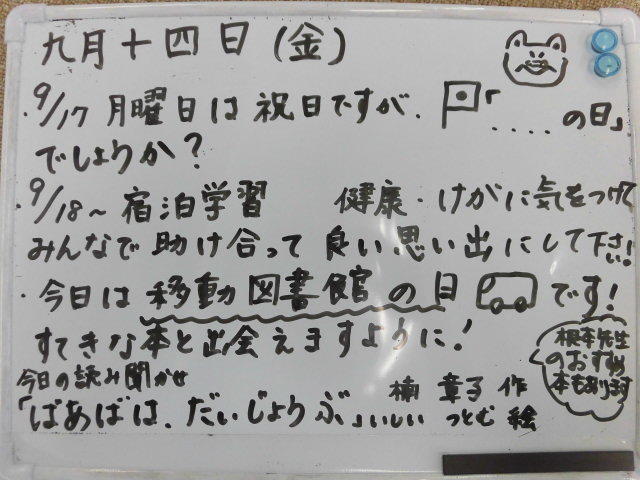 九月十四日(金)
・9/17 月曜日は祝日ですが、「....の日」
でしょうか?
・9/18~宿泊学習 健康・けがに気をつけて
みんなで助け合って良い思い出にして下さい!
・今日は移動図書館の日です!
すてきな本と出会えますように!
根本先生
のおすすめ
本もあります
今日の読み聞かせ
「ばあばは、だいじょうぶ」楠 章子 作
いしい つとむ 絵